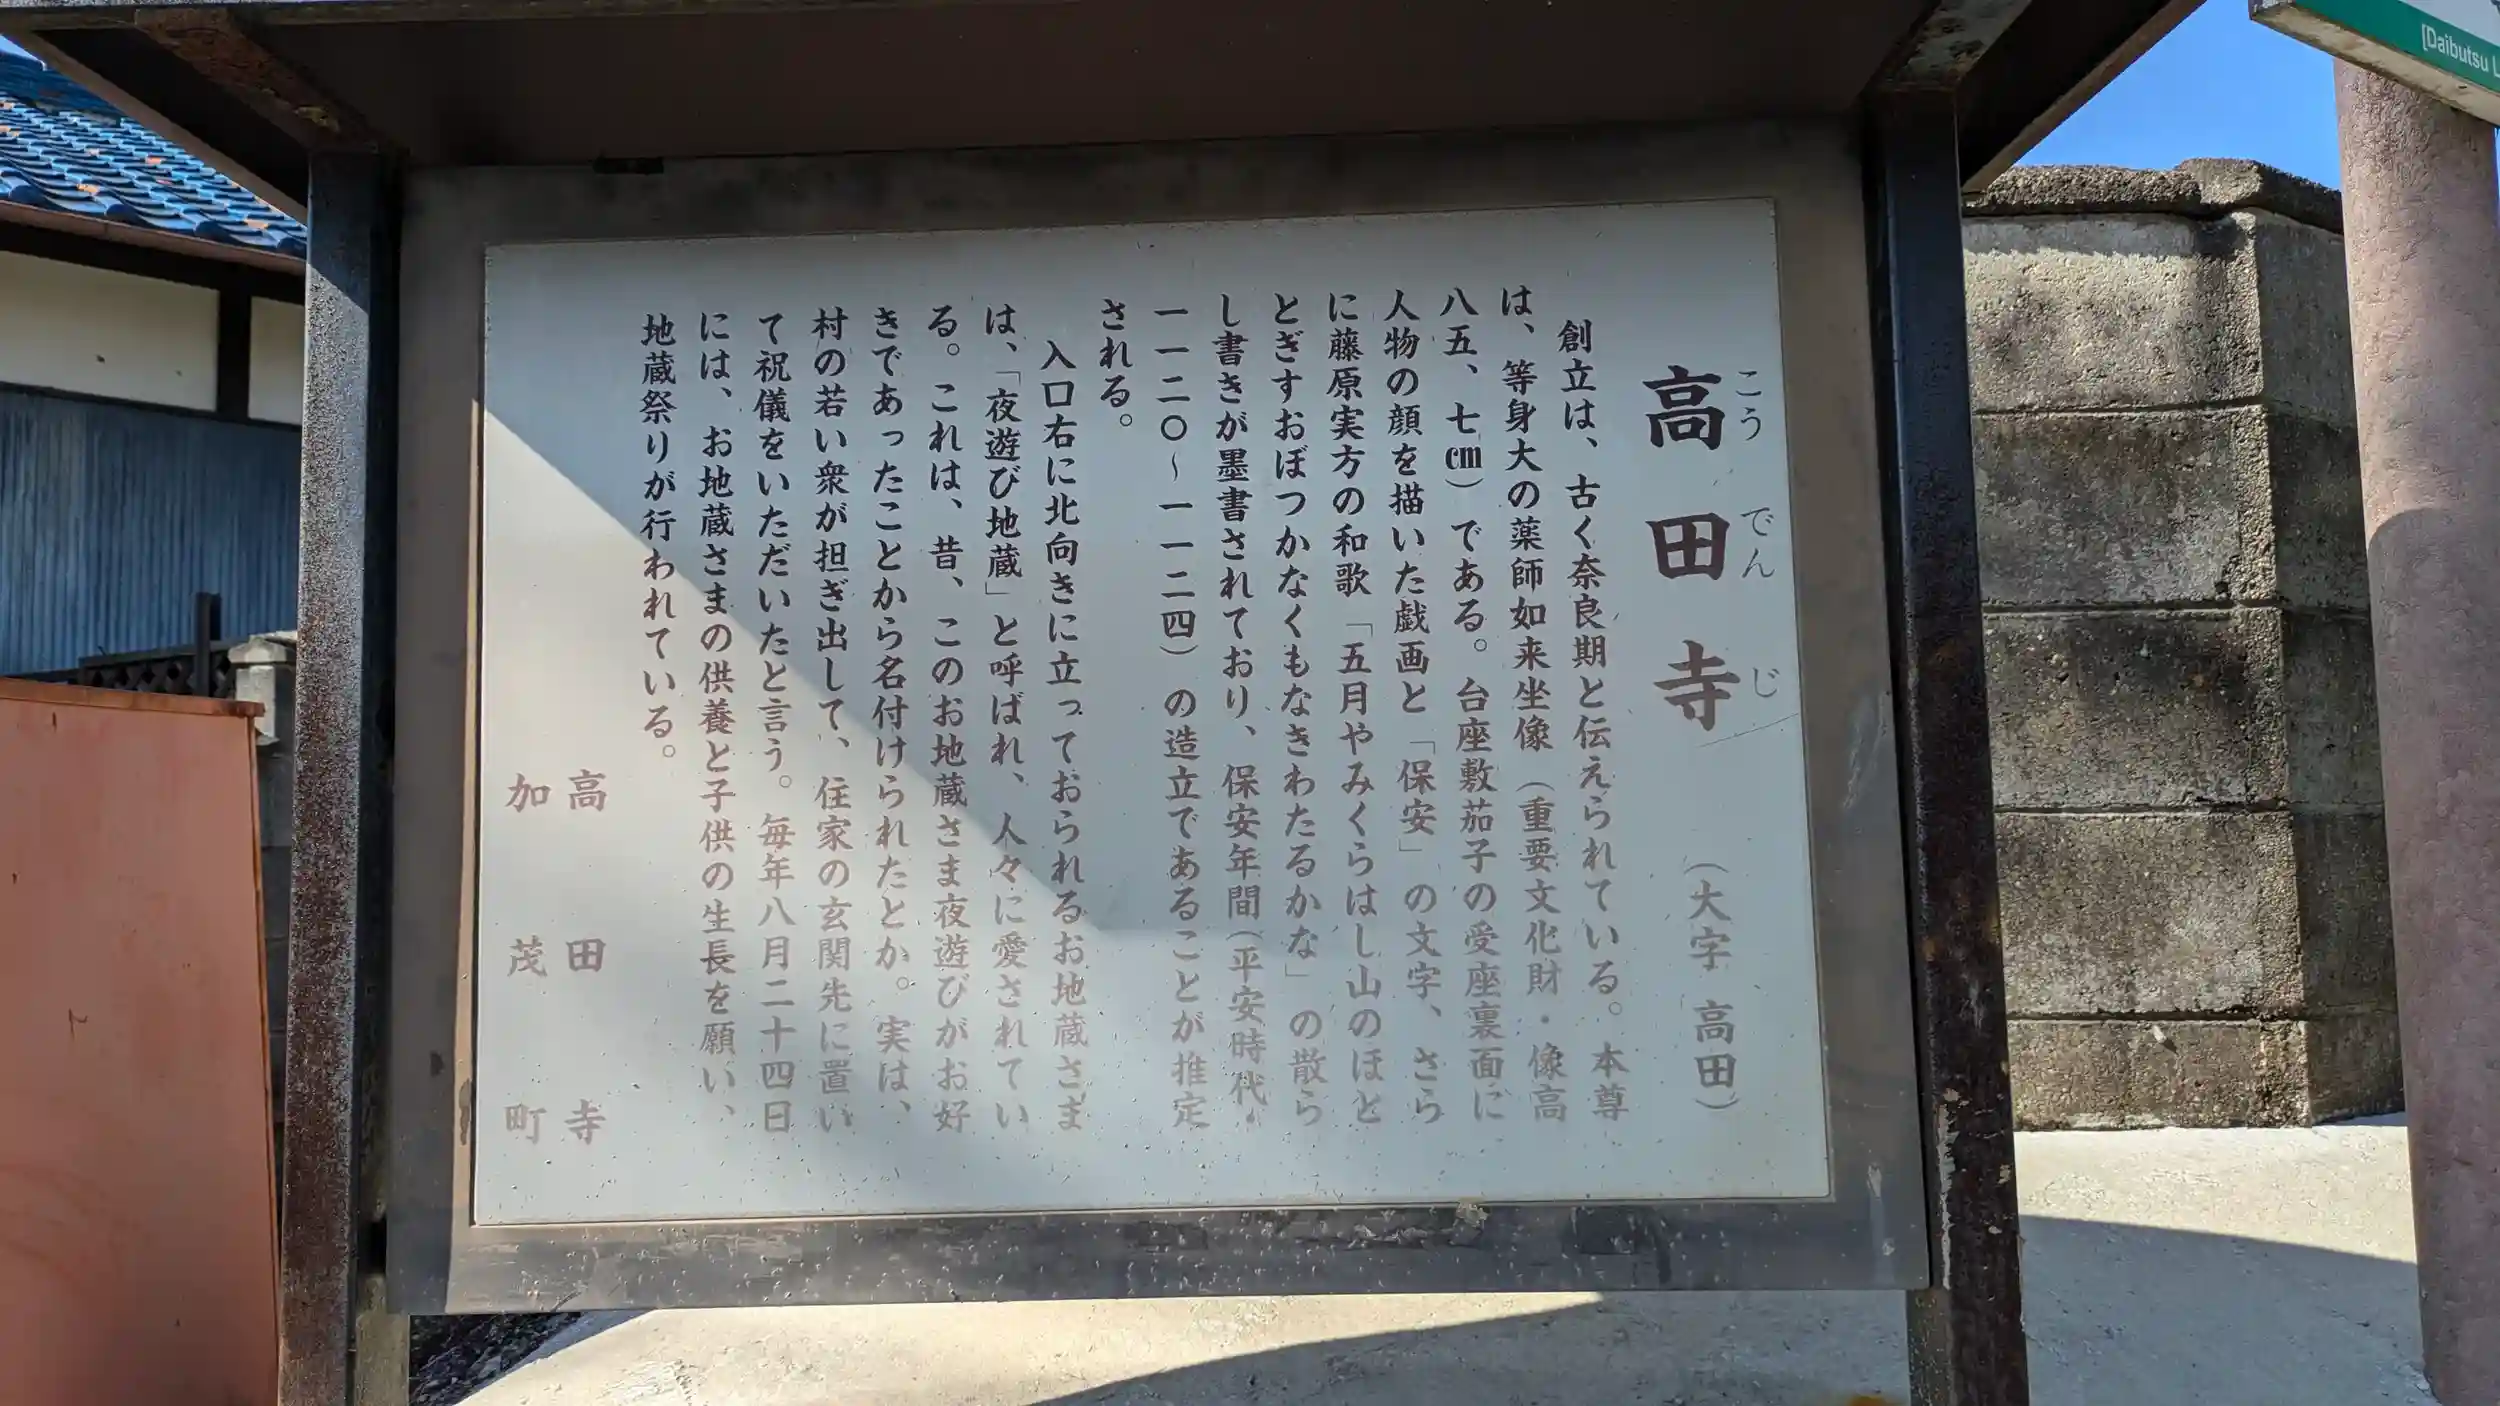 高田寺 （大字 高田）
こう でん じ
創立は、古く奈良期と伝えられている。本尊
は、等身大の薬師如来坐像（重要文化財・像高
八五、七㎝）である。台座敷茄子の受座裏面に
人物の顔を描いた戯画と「保安」の文字、さら
に藤原実方の和歌「五月やみくらはし山のほと
とぎすおぼつかなくもなきわたるかな」の散ら
し書きが墨書されており、保安年間（平安時代・
一一二〇～一一二四）の造立であることが推定
される。
入口右に北向きに立っておられるお地蔵さま
は、「夜遊び地蔵」と呼ばれ、人々に愛されてい
る。これは、昔、このお地蔵さま夜遊びがお好
きであったことから名付けられたとか。実は、
村の若い衆が担ぎ出して、住家の玄関先に置い
て祝儀をいただいたと言う。毎年八月二十四日
には、お地蔵さまの供養と子供の生長を願い、
地蔵祭りが行われている。
高田寺
加茂町
[Daibutsu